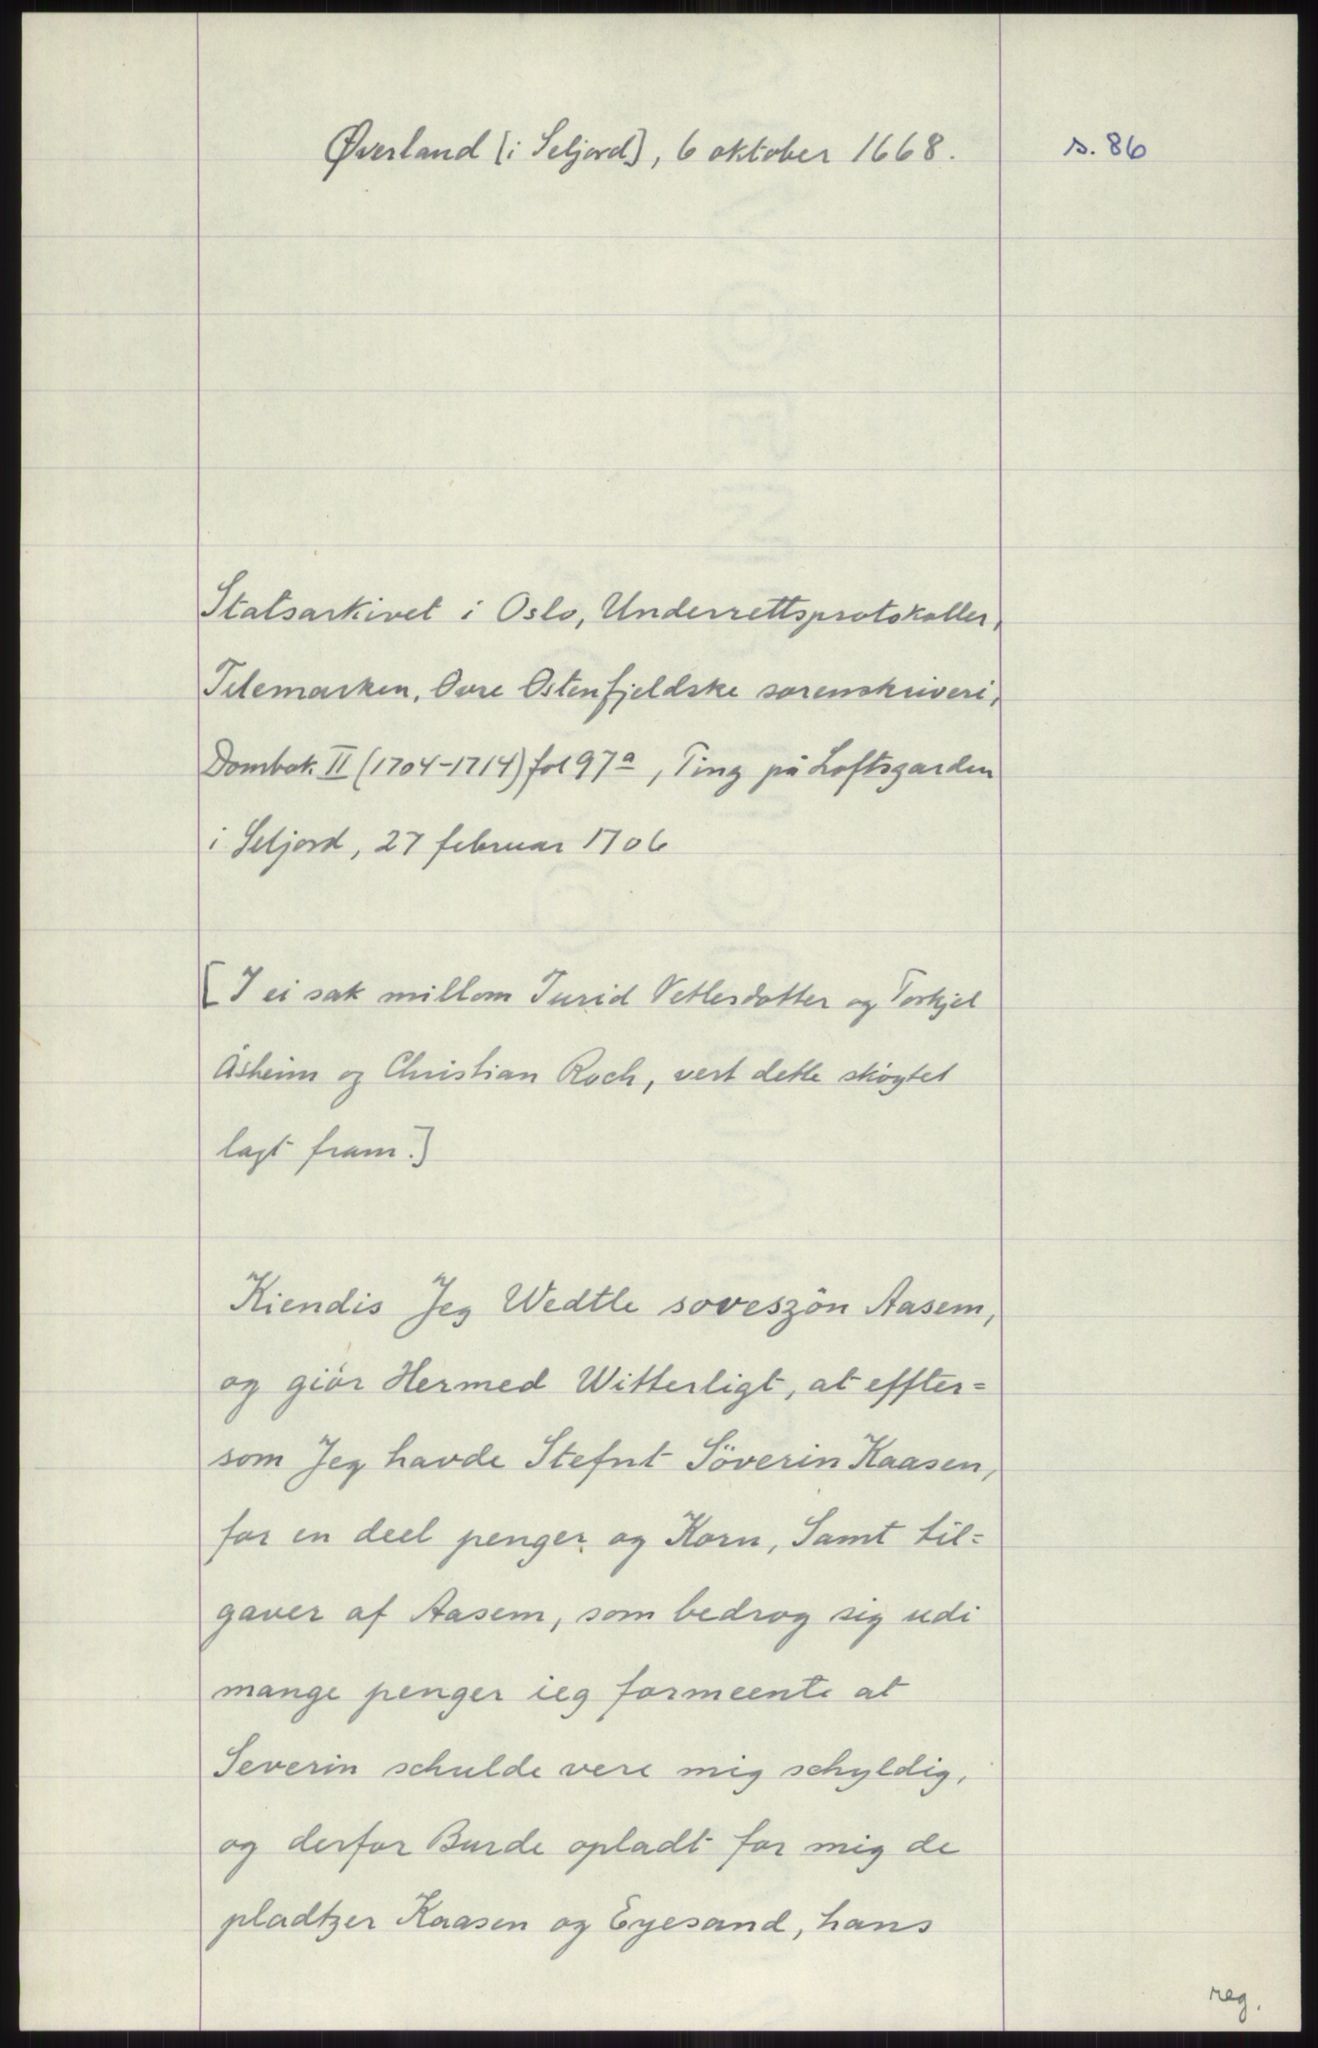 Øverland [i Seljord], 6 oktober 1668.
s. 86
Statsarkivet i Oslo, Underrettsprotokoller,
Telemarken, Øvre Østenfjeldske sorenskriveri,
Dombok II (1704-1714) fol 97a, Ting på Loftsgarden
i Seljord, 27 februar 1706
[I ei sak millom Turid Vetlesdotter og Torkjel
Åsheim og Christian Roch, vert dette skøytet
lagt fram.]
Kiendis Jeg Wedtle soveszön Aasem,
og giör Hermed Witterligt, at effter=
som Jeg havde Stefnt Söverin Kaasen,
for en deel penger og Korn, Samt til=
gaver af Aasem, som bedrog sig udi
mange penger ieg formeente at
Severin schulde vere mig schyldig,
og derfor Burde opladt for mig de
pladtzer Kaasen og Eyesand, hans
reg.